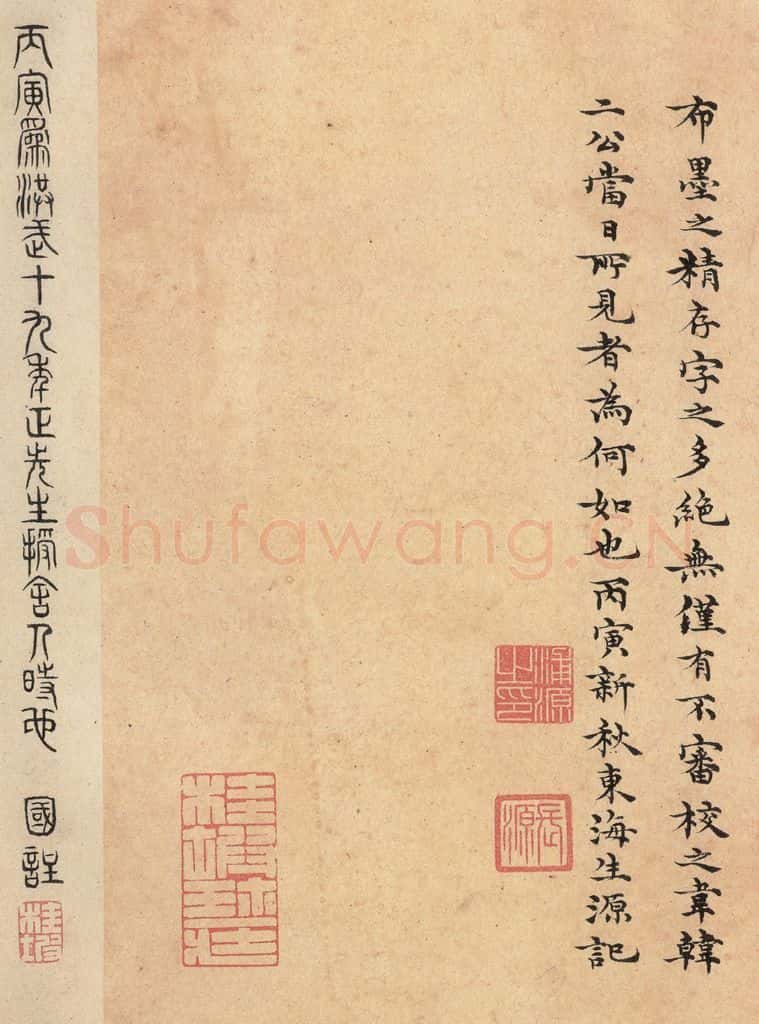 布墨之精存字之多絶無僅有不審校之韋韓
二公當日所見者為何如也丙寅新秋東海生源記
浦源之印
丙寅為洪武十九年正先生授舍人時也 國詮
Shufawang.CN